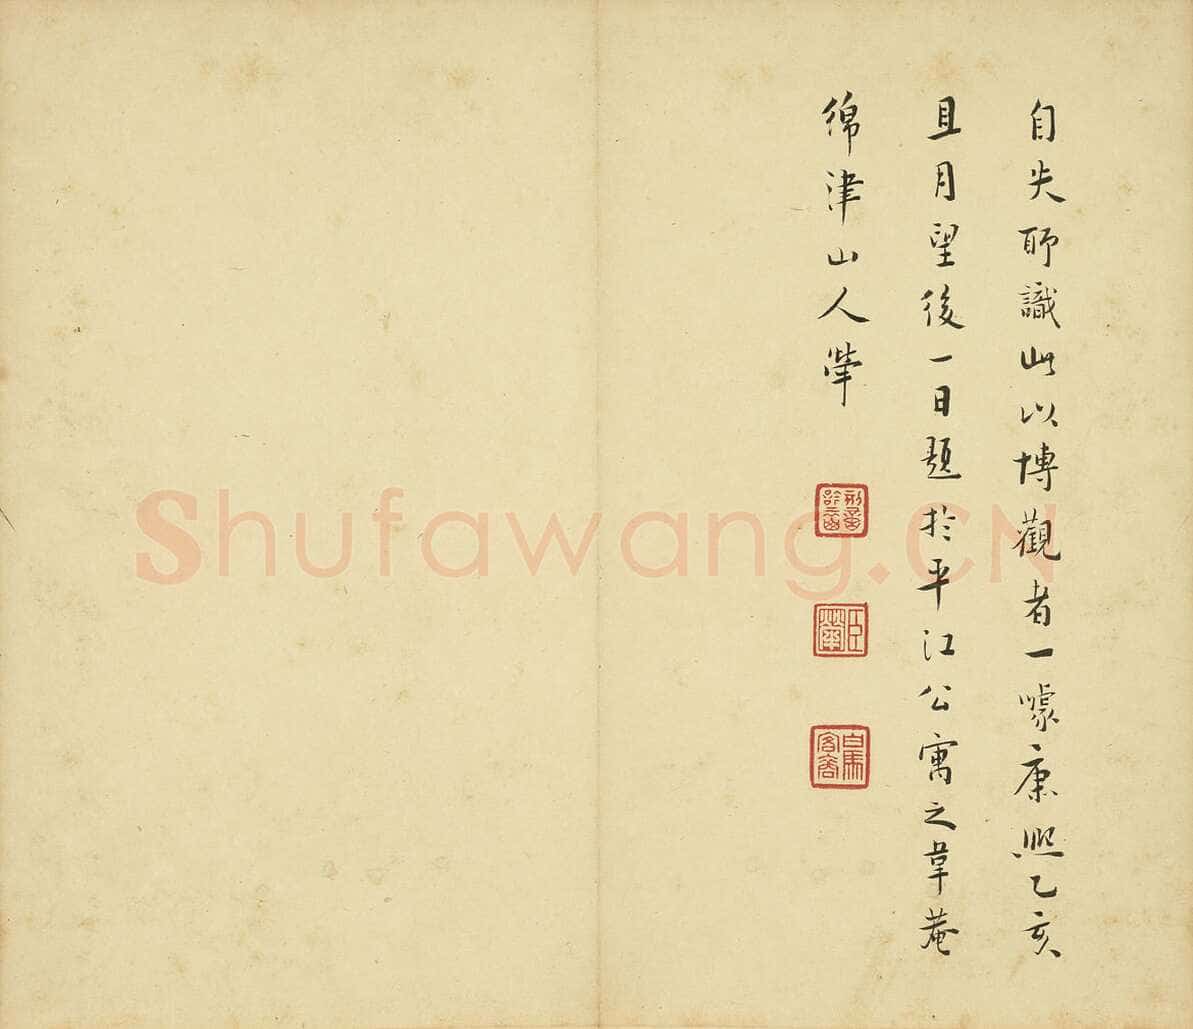 自失聊識此以博觀者一噱康熙乙亥
且月望後一日題於平江公寓之韋菴
綿津山人犖
臣犖
白馬客裔
Shufawang.CN